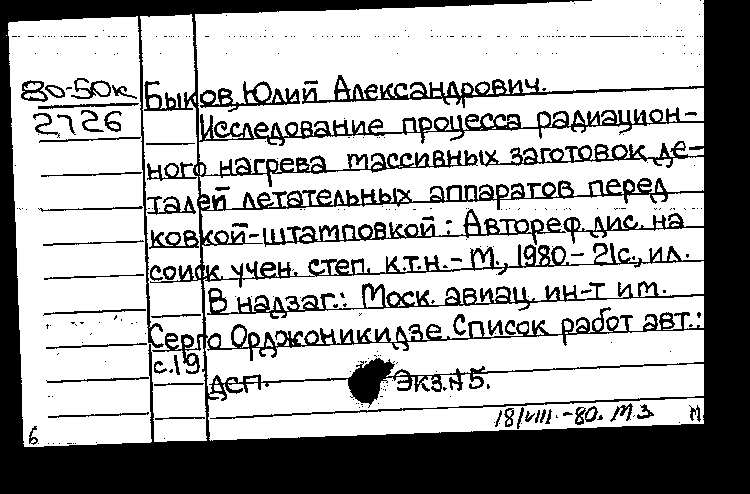 80-50к
2726
Быков, Юлий Александрович.
Исследование процесса радиацион-
ного нагрева массивных заготовок де-
талей летательных аппаратов перед
ковкой-штамповкой: Автореф. дис. на
соиск. учен. степ. к.т.н. - М., 1980. - 21с., ил.
В надзаг.: Моск. авиац. ин-т им.
Серго Орджоникидзе. Список работ авт.:
с.19.
ДСП. Экз.№5.
18/VIII.-80. М З. М.
б